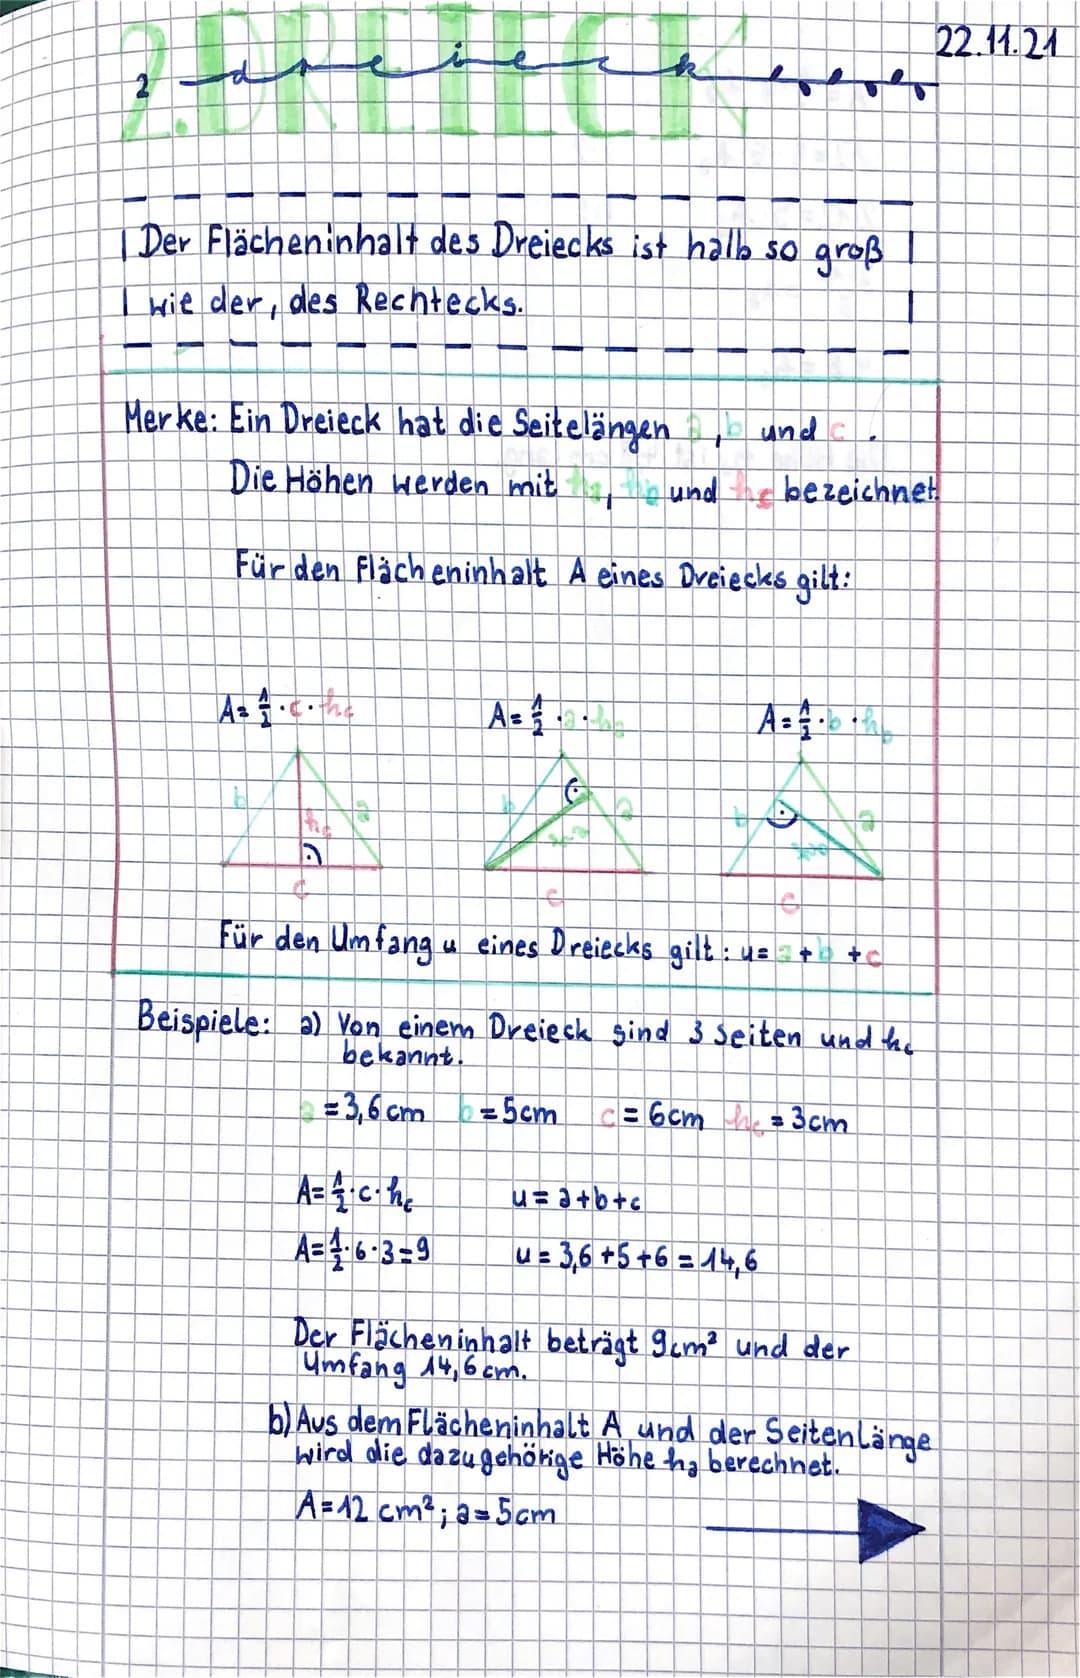 22.11.21
2. DREIECK
2 dreieck
Der Flächeninhalt des Dreiecks ist halb so groß
wie der, des Rechtecks.
Merke: Ein Dreieck hat die Seitelängen a, b und c.
Die Höhen werden mit ha, hb und hc bezeichnet.
Für den Flächeninhalt A eines Dreiecks gilt:
A = 1/2 · c · hc A = 1/2 · a · ha A = 1/2 · b · hb
b hc a b ha a b hb a
c c c
Für den Umfang u eines Dreiecks gilt: u = a + b + c
Beispiele: a) Von einem Dreieck sind 3 Seiten und hc
bekannt.
a = 3,6 cm b = 5cm c = 6cm hc = 3cm
A = 1/2 · c · hc u = a + b + c
A = 1/2 · 6 · 3 = 9 u = 3,6 + 5 + 6 = 14,6
Der Flächeninhalt beträgt 9cm² und der
Umfang 14,6 cm.
b) Aus dem Flächeninhalt A und der Seitenlänge
wird die dazugehörige Höhe ha berechnet.
A = 12 cm²; a = 5cm